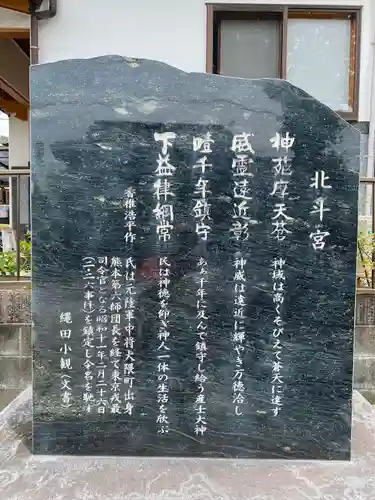 北斗宮
神苑摩天蒼 神域は高くそびえて蒼天に達す
威霊遠近彰 神威は遠近に輝やき万徳洽し
噫千年鎮守 あゝ千年に及んで鎮守し給う産土大神
下益律綱常 民は神徳を仰ぎ神人一体の生活を欣ぶ
香椎浩平作 氏は元陸軍中将大隈町出身
熊本第六師団長を経て東京戒厳
司令官となる昭和十一年二月二十六日
(二・二六事件)を鎮定し令名を馳す
縄田小観(文書)